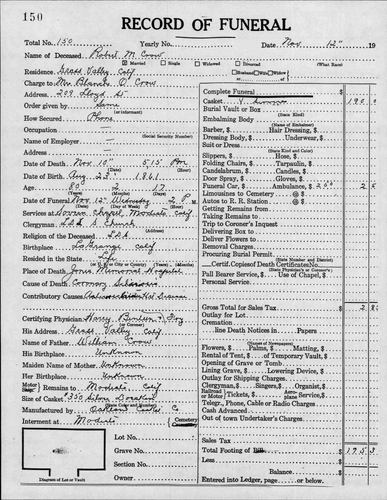 150
RECORD OF FUNERAL
Total No. 150 Yearly No. Date Nov 12" 19
Name of Deceased Robert M Crow
Married Single Widowed Divorced (What Race)
Residence Grass Valley Calif Husband Wife Widow
Charge to Mrs Blanche O Crow
Address 209 Floyd St
Order given by Same
(or informant)
How Secured Phone
Occupation
(Social Security Number)
Name of Employer
Address
Date of Death Nov 10" 5:15 Pm
Date of Birth Aug 23" 1861
Age 80 2 17
(Years) (Months) (Days)
Date of Funeral Nov 12" Wednesday 2 P. M.
Services at Chapel, Modesto, Calif
Clergyman L D S Church
Religion of the Deceased LDS
Birthplace LaGrange Calif
Resided in the State Life
Place of Death Jones Memorial Hospital
Cause of Death Coronary Sclerosis
Contributory Causes
Certifying Physician Harry
His Address Grass Valley Calif
Name of Father William Crow
His Birthplace Unknown
Maiden Name of Mother Unknown
Her Birthplace Unknown
Motor Ship Remains to Modesto Calif
Size of Casket
Manufactured by Oakland Casket Co
Interment at Modesto Cemetery
Lot No.
Grave No.
Section No.
Owner
Diagram of Lot or Vault
Complete Funeral
Casket
Burial Vault or Box
(State Kind)
Embalming Body
(Name of Embalmer)
Barber, Hair Dressing,
Dressing Body, Underwear,
Suit or Dress
(State Kind)
Slippers, Hose,
Folding Chairs, Tarpaulin,
Candelabrum, Candles,
Door Spray, Gloves,
Funeral Car, Ambulance,
Limousines to Cemetery @
Autos to R. R. Station @
Getting Remains from
Taking Remains to
Trip to Coroner's Inquest
Delivering Box to
Deliver Flowers to
Removal Charges
Procuring Burial Permit
(State Number and District)
Certif. Copies of Death Certificates No.
(State Physician's or Coroner's)
Pall Bearer Service, Use of Chapel,
Personal Service
Gross Total for Sales Tax
Outlay for Lot
Cremation
line Death Notices in Papers
(Names of Newspapers)
Flowers, Palms, Matting,
Rental of Tent, of Temporary Vault,
Opening of Grave or Tomb
Lining Grave, Lowering Device,
Outlay for Shipping Charges
Clergyman, Singers, Organist,
Telegr., Phone, Cable or Radio Charges
Cash Advanced
Out of town Undertaker's Charges
Sales Tax
Total Footing of Bill
Less
Balance
Entered into Ledger, page or below.